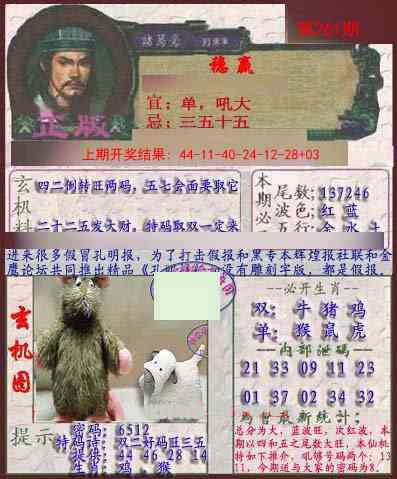 第261期
诸葛亮
稳赢
宜：单，吼大
正版
忌：三五十五
上期开奖结果：44-11-40-24-12-28+03
玄机料
四二倒转旺两码，五七会面要取它
二十二五发大财，特码取双一定来
本期必
尾数:137246
波色:红 蓝
五行:金 水 土
进来很多假冒孔明报，为了打击假报和黑专本辉煌报社联和金
鹰论坛共同推出精品
没有雕刻字版，都是假报.
玄机图
必开生肖
双: 牛 猪 鸡
单: 猴 鼠 虎
内部泄码
21 33 09 11 23
01 37 02 34 32
最新统计：
提示
密码: 6512
特码诗: 双二好码旺三五
提供: 44 46 28 14
生肖: 鸡 , 猴
总部分为大，蓝波旺，次红波，本
期以四和五之尾数大旺，本仙机
持如下推介，吼够号码两个：13
11，今期送与大家的密码为8.